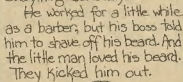 He worked for a little while
as a barber, but his boss told
him to shave off his beard. And
the little man loved his beard.
They kicked him out.